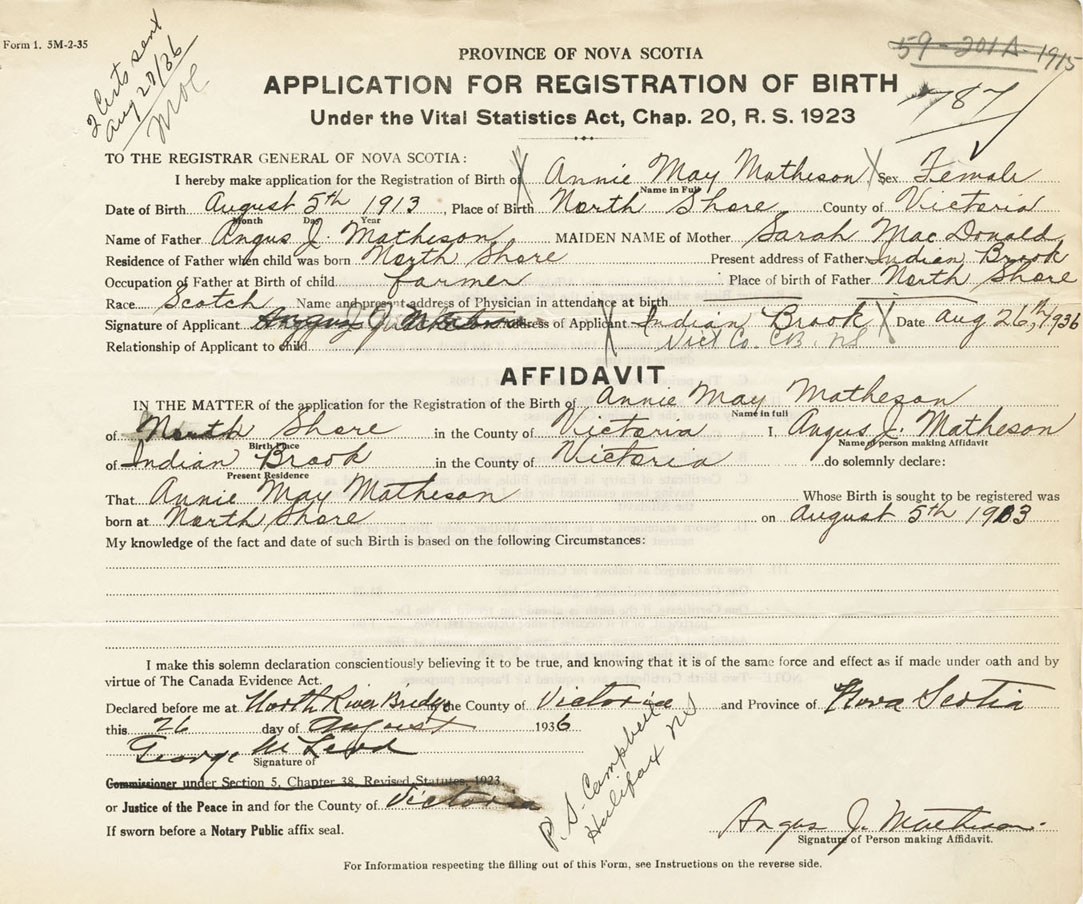 Form 1. 5M-2-35
2 Certs sent
Aug 28/36
59-201A-1915
787
PROVINCE OF NOVA SCOTIA
APPLICATION FOR REGISTRATION OF BIRTH
Under the Vital Statistics Act, Chap. 20, R. S. 1923
TO THE REGISTRAR GENERAL OF NOVA SCOTIA:
I hereby make application for the Registration of Birth of Annie May Matheson Sex Female
Name in Full
Date of Birth August 5th 1913, Place of Birth North Shore County of Victoria
Month Day Year
Name of Father Angus J. Matheson MAIDEN NAME of Mother Sarah MacDonald
Residence of Father when child was born North Shore Present address of Father Indian Brook
Occupation of Father at Birth of child farmer Place of birth of Father North Shore
Race Scotch Name and present address of Physician in attendance at birth
Signature of Applicant Angus J. Matheson Address of Applicant Indian Brook Date Aug 26th, 1936
Relationship of Applicant to child Vict Co. C.B. NS
AFFIDAVIT
IN THE MATTER of the application for the Registration of the Birth of Annie May Matheson
Name in full
of North Shore in the County of Victoria I, Angus J. Matheson
Birth Place Name of person making Affidavit
of Indian Brook in the County of Victoria do solemnly declare:
Present Residence
That Annie May Matheson Whose Birth is sought to be registered was
born at North Shore on August 5th 1913
My knowledge of the fact and date of such Birth is based on the following Circumstances:
I make this solemn declaration conscientiously believing it to be true, and knowing that it is of the same force and effect as if made under oath and by
virtue of The Canada Evidence Act.
Declared before me at North River Bridge the County of Victoria and Province of Nova Scotia
this 26 day of August 1936
George McLeod
Signature of
Commissioner under Section 5, Chapter 38, Revised Statutes 1923
or Justice of the Peace in and for the County of Victoria
If sworn before a Notary Public affix seal.
P. S. Campbell
Halifax NS
Angus J. Matheson
Signature of Person making Affidavit.
For Information respecting the filling out of this Form, see Instructions on the reverse side.